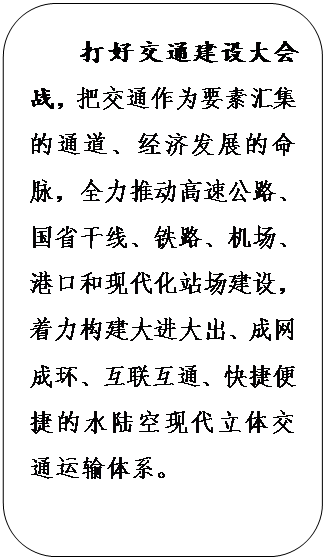 打好交通建设大会
战，把交通作为要素汇集
的通道、经济发展的命
脉，全力推动高速公路、
国省干线、铁路、机场、
港口和现代化站场建设，
着力构建大进大出、成网
成环、互联互通、快捷便
捷的水陆空现代立体交
通运输体系。